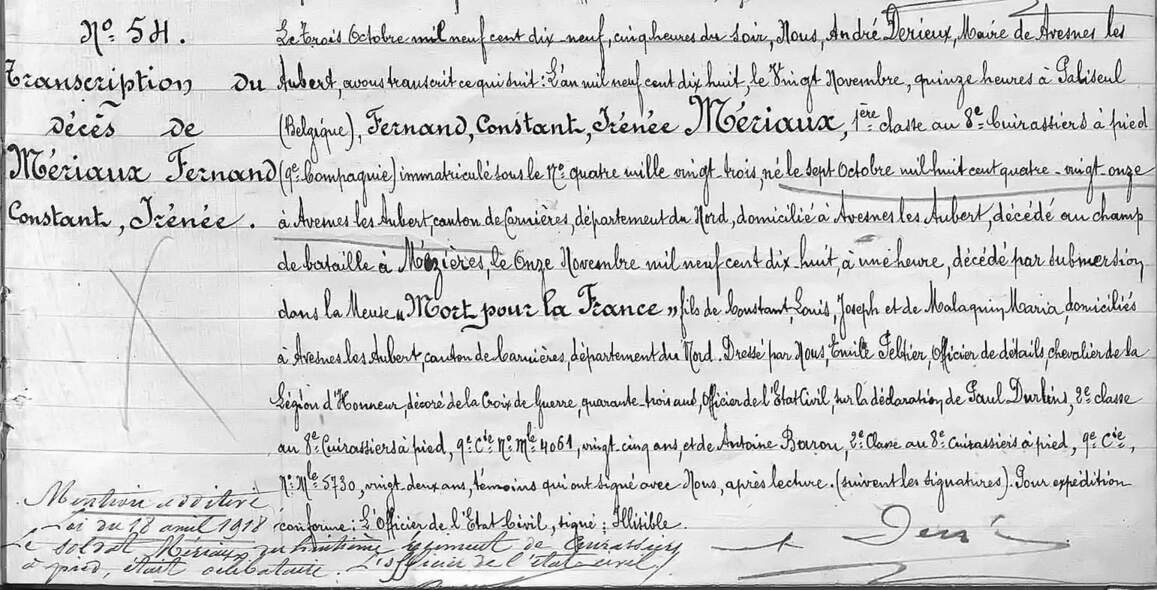 No. 54.
Transcription du
décès de
Mériaux Fernand
Constant, Irénée.
Le Trois Octobre mil neuf cent dix-neuf, cinq heures du soir, Nous, André Derieux, Maire de Avesnes les
Aubert, avons transcrit ce qui suit : L'an mil neuf cent dix huit, le Vingt Novembre, quinze heures à Paliseul
(Belgique), Fernand, Constant, Irénée Mériaux, 1ère classe au 8e Cuirassiers à pied
(9e Compagnie) immatriculé sous le No quatre mille vingt-trois, né le sept Octobre mil huit cent quatre-vingt-onze
à Avesnes les Aubert, canton de Carnières, département du Nord, domicilié à Avesnes les Aubert, décédé au champ
de bataille à Mézières, le Onze Novembre mil neuf cent dix-huit, à une heure, décédé par submersion
dans la Meuse "Mort pour la France" fils de Constant, Louis, Joseph et de Malaquin Maria, domiciliés
à Avesnes les Aubert, canton de Carnières, département du Nord. Dressé par Nous, Emile Peltier, Officier de détails, chevalier de la
Légion d'Honneur, décoré de la Croix de Guerre, quarante-trois ans, Officier de l'Etat Civil, sur la déclaration de Paul 2e classe
au 8e Cuirassiers à pied, 9e Cie No Mle 4061, vingt cinq ans, et de Antoine 2e Classe au 8e Cuirassiers à pied, 9e Cie,
No Mle 5730, vingt-deux ans, témoins qui ont signé avec Nous, après lecture. (suivent les signatures). Pour expédition
conforme : L'Officier de l'Etat Civil, signé : Illisible.
Mention additive
Loi du 18 avril 1918
Le soldat Mériaux, au huitième régiment de Cuirassiers
à pied, était célibataire. L'officier de l'état civil,